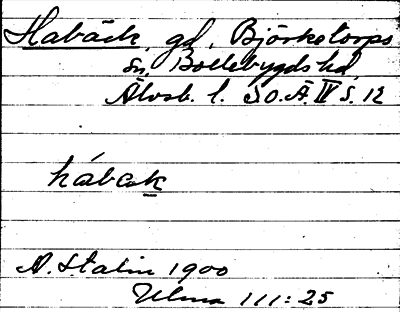 Habäck, gd, Björketorps
sn, Bollebygds hd,
Älvsb. l. SO.Ä. IV S. 12
hábak
N. Stalin 1900
Ulma 111:25